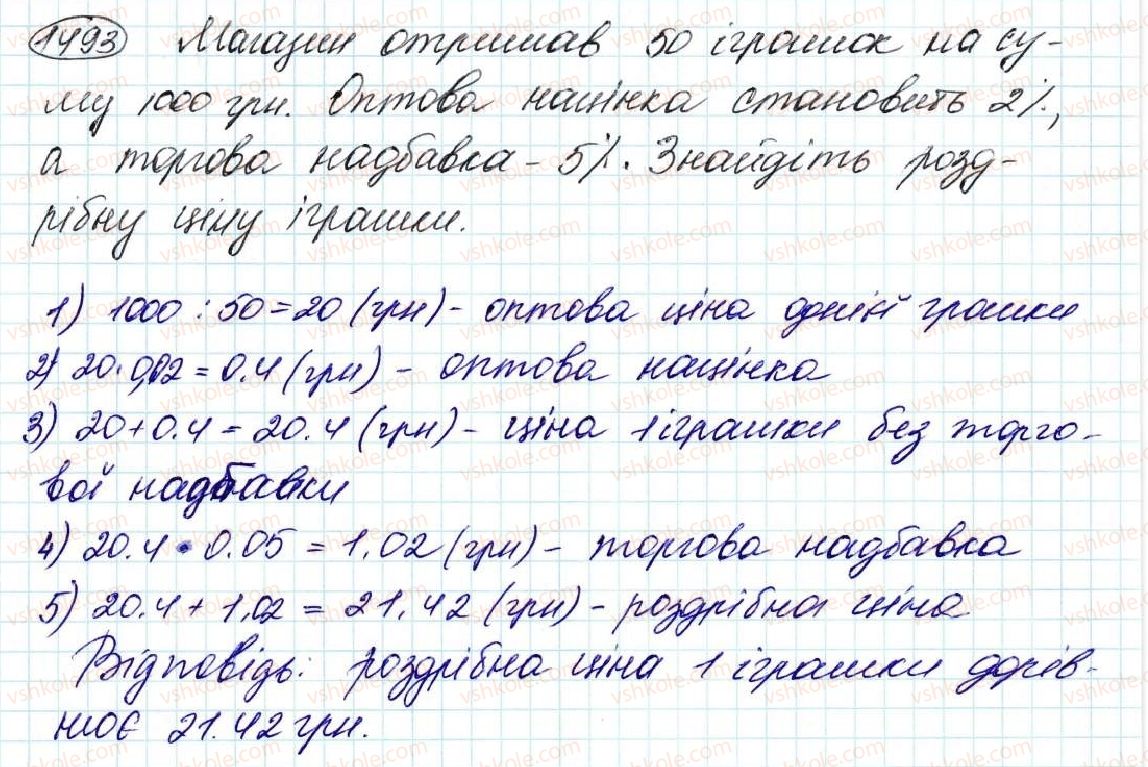 1493 Магазин отримав 50 іграшок на су-
му 1000 грн. Оптова націнка становить 2%,
а торгова надбавка - 5%. Знайдіть розд-
рібну ціну іграшки.
1) 1000 : 50 = 20 (грн) - оптова ціна однієї грашки
2) 20·0,02 = 0.4 (грн) - оптова націнка
3) 20+0.4 = 20.4 (грн) - ціна 1 іграшки без торго-
вої надбавки
4) 20.4 · 0.05 = 1.02 (грн) - торгова надбавка
5) 20.4 + 1,02 = 21.42 (грн) - роздрібна ціна
Відповідь: роздрібна ціна 1 іграшки дорів-
нює 21.42 грн.